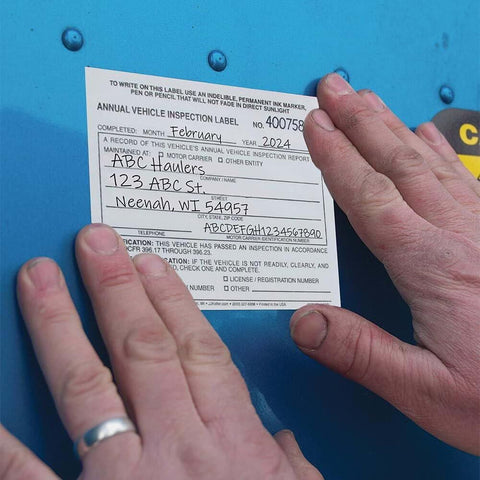 TO WRITE ON THIS LABEL USE AN INDELIBLE, PERMANENT INK MARKER,
PEN OR PENCIL THAT WILL NOT FADE IN DIRECT SUNLIGHT
ANNUAL VEHICLE INSPECTION LABEL NO. 400758
COMPLETED: MONTH February YEAR 2024
A RECORD OF THIS VEHICLE'S ANNUAL VEHICLE INSPECTION REPORT
MAINTAINED AT: ☐ MOTOR CARRIER ☐ OTHER ENTITY
ABC Haulers
COMPANY / NAME
123 ABC St.
STREET
Neenah, WI 54957
CITY, STATE, ZIP CODE
ABCDEFGH1234567890
TELEPHONE MOTOR CARRIER IDENTIFICATION NUMBER
FICATION: THIS VEHICLE HAS PASSED AN INSPECTION IN ACCORDANCE
CFR 396.17 THROUGH 396.23.
ICATION: IF THE VEHICLE IS NOT READILY, CLEARLY, AND
CHECK ONE AND COMPLETE.
☐ LICENSE / REGISTRATION NUMBER
NUMBER ☐ OTHER
Printed in the USA
C